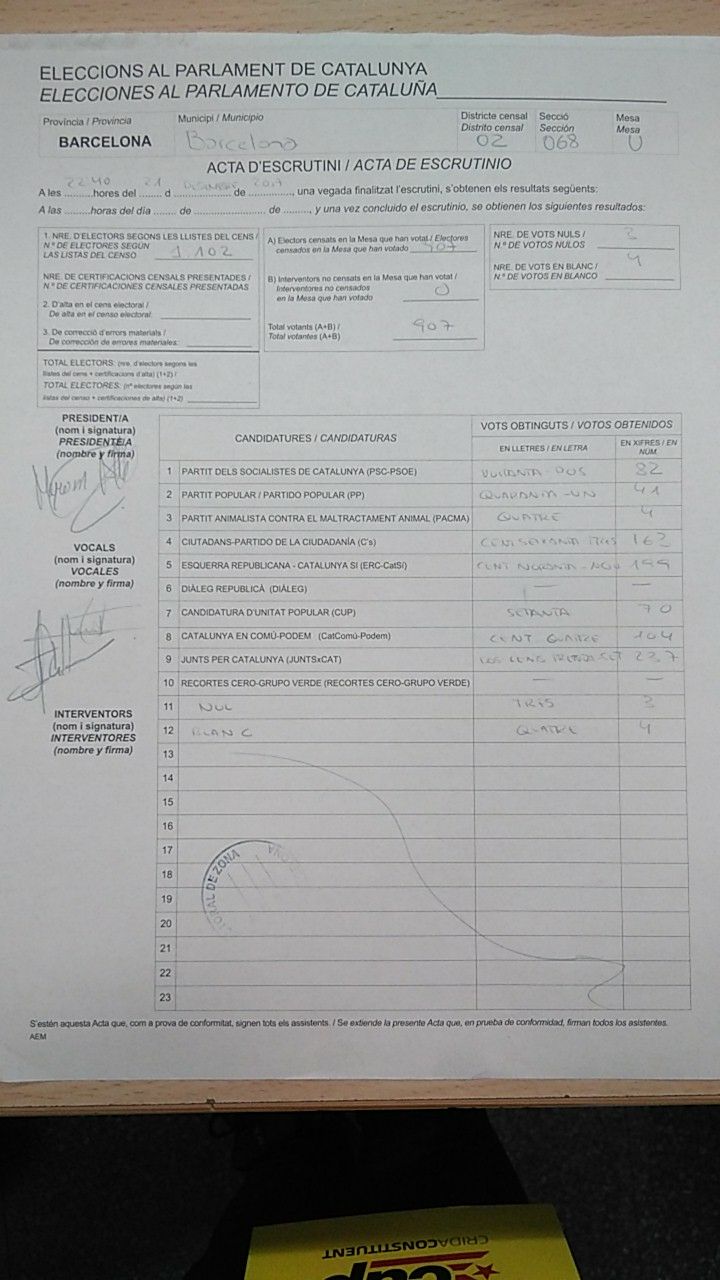 ELECCIONS AL PARLAMENT DE CATALUNYA
ELECCIONES AL PARLAMENTO DE CATALUÑA
Província / Provincia
BARCELONA
Municipi / Municipio
Barcelona
Districte censal
Distrito censal
02
Secció
Sección
068
Mesa
Mesa
U
ACTA D'ESCRUTINI / ACTA DE ESCRUTINIO
A les 22 40 hores del 21 d DESEMBRE de 2017, una vegada finalitzat l'escrutini, s'obtenen els resultats següents:
A las ......... horas del día ....... de ......................... de ........, y una vez concluido el escrutinio, se obtienen los siguientes resultados:
1. NRE. D'ELECTORS SEGONS LES LLISTES DEL CENS /
N.º DE ELECTORES SEGÚN
LAS LISTAS DEL CENSO 1.102
NRE. DE CERTIFICACIONS CENSALS PRESENTADES /
N.º DE CERTIFICACIONES CENSALES PRESENTADAS
2. D'alta en el cens electoral /
De alta en el censo electoral:
3. De correcció d'errors materials /
De corrección de errores materiales:
TOTAL ELECTORS: (nre. d'electors segons les
llistes del cens + certificacions d'alta) (1+2) /
TOTAL ELECTORES: (nº electores según las
listas del censo + certificaciones de alta) (1+2)
A) Electors censats en la Mesa que han votat / Electores
censados en la Mesa que han votado 907
B) Interventors no censats en la Mesa que han votat /
Interventores no censados
en la Mesa que han votado 0
Total votants (A+B) /
Total votantes (A+B) 907
NRE. DE VOTS NULS /
N.º DE VOTOS NULOS 3
NRE. DE VOTS EN BLANC /
N.º DE VOTOS EN BLANCO 4
PRESIDENT/A
(nom i signatura)
PRESIDENTE/A
(nombre y firma)
VOCALS
(nom i signatura)
VOCALES
(nombre y firma)
INTERVENTORS
(nom i signatura)
INTERVENTORES
(nombre y firma)
CANDIDATURES / CANDIDATURAS
VOTS OBTINGUTS / VOTOS OBTENIDOS
EN LLETRES / EN LETRA
EN XIFRES / EN NÚM.
1 PARTIT DELS SOCIALISTES DE CATALUNYA (PSC-PSOE) VUITANTA-DOS 82
2 PARTIT POPULAR / PARTIDO POPULAR (PP) QUARANTA-UN 41
3 PARTIT ANIMALISTA CONTRA EL MALTRACTAMENT ANIMAL (PACMA) QUATRE 4
4 CIUTADANS-PARTIDO DE LA CIUDADANÍA (C's) CENT SEIXANTA TRES 163
5 ESQUERRA REPUBLICANA - CATALUNYA SÍ (ERC-CatSí) CENT NORANTA-NOU 199
6 DIÀLEG REPUBLICÀ (DIÀLEG) — —
7 CANDIDATURA D'UNITAT POPULAR (CUP) SETANTA 70
8 CATALUNYA EN COMÚ-PODEM (CatComú-Podem) CENT QUATRE 104
9 JUNTS PER CATALUNYA (JUNTSxCAT) DOS CENTS TRENTA SET 237
10 RECORTES CERO-GRUPO VERDE (RECORTES CERO-GRUPO VERDE) — —
11 NUL TRES 3
12 BLANC QUATRE 4
13
14
15
16
17
18
19
20
21
22
23
TORAL DE ZONA
S'estén aquesta Acta que, com a prova de conformitat, signen tots els assistents. / Se extiende la presente Acta que, en prueba de conformidad, firman todos los asistentes.
AEM
CRIDACONSTITUENT
cup